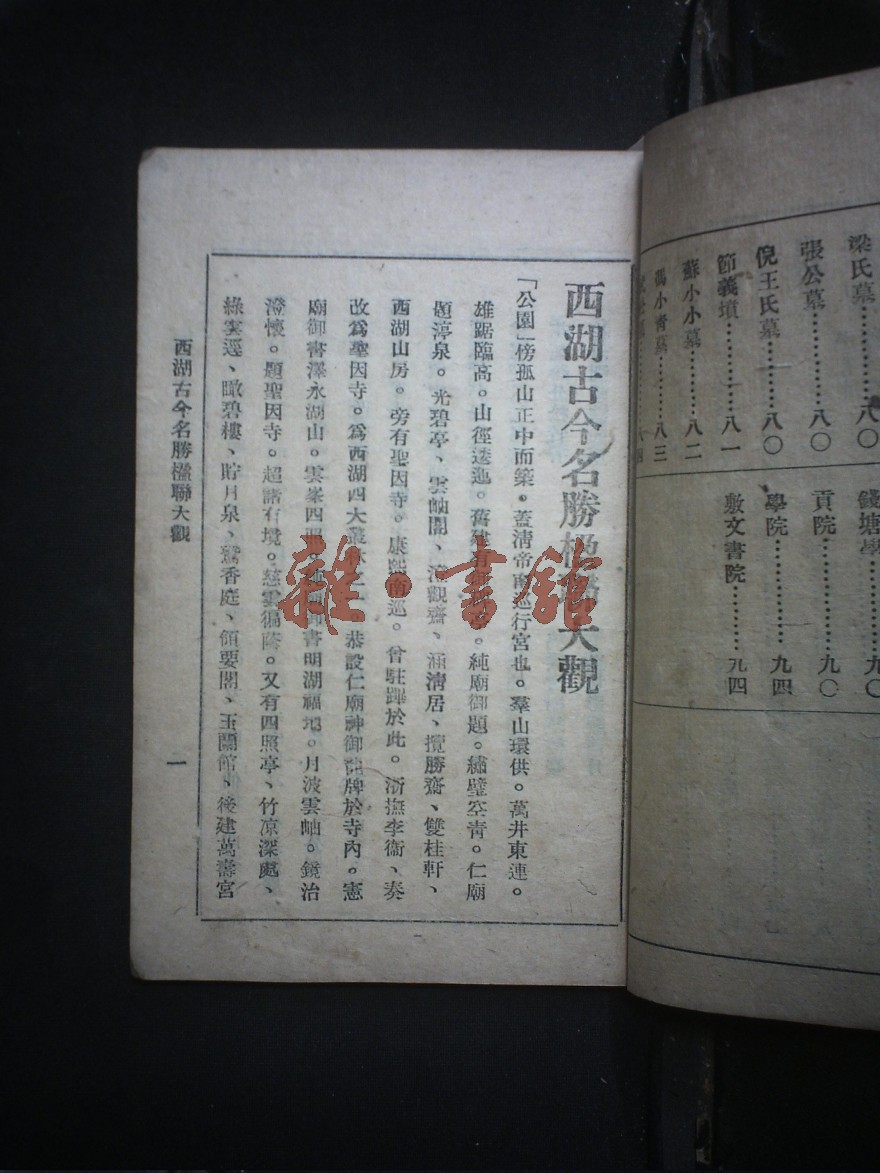 梁氏墓……八〇
張公墓……八〇
倪王氏墓……八〇
節義墳……八一
蘇小小墓……八二
馮小青墓……八三
錢塘學……九〇
貢院……九〇
學院……九四
敷文書院……九四
西湖古今名勝楹聯大觀
「公園」傍孤山正中而築。蓋清帝南巡行宮也。羣山環供。萬井東連。
雄踞臨高。山徑逶迤。舊建有。純廟御題。繡壁空青。仁廟
題渟泉。光碧亭、雲岫閣、澄觀齋、涵清居、攬勝齋、雙桂軒、
西湖山房。旁有聖因寺。康熙南巡。曾駐蹕於此。浙撫李衞、奏
改爲聖因寺。爲西湖四大叢林之一。恭設仁廟神御龍牌於寺內。憲
廟御書澤永湖山。雲峯四照。純廟御書明湖福地。月波雲岫。鏡治
澄懷。題聖因寺。超諸有境。慈雲徧蔭。又有四照亭、竹凉深處、
綠雲逕、瞰碧樓、貯月泉、鷲香庭、領要閣、玉蘭館、後建萬壽宮
西湖古今名勝楹聯大觀
一
雜·書館